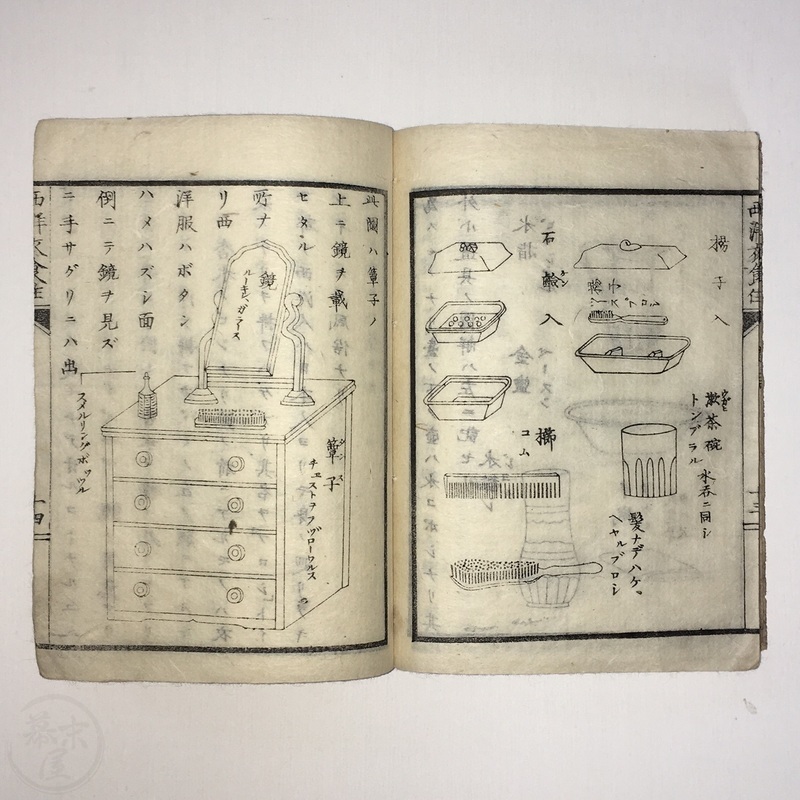 楊子入
小楊子
ツースブロシ
石鹸入
漱茶碗
トンブラル 水呑ニ同シ
櫛
コム
髪ナデハケ
ヘヤルブロシ
此圖ハ簟子ノ
上ニ鏡ヲ載
セタル
所ナ
リ西
洋服ハボタン
ハメハズシ面
倒ニテ鏡ヲ見ズ
ニ手サグリニハ出
鏡
ルーキンガラース
簟子
チェストヲフヅローワルス
スメルリングボッツル
西洋衣食住
十四
幕末屋